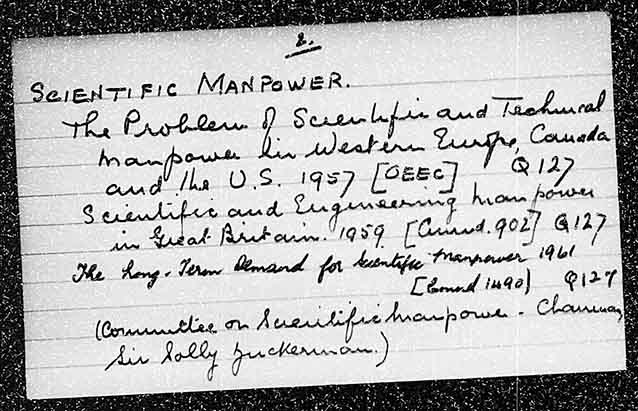 2.
SCIENTIFIC MANPOWER.
The Problem of Scientific and Technical
manpower in Western Europe, Canada
and the U.S. 1957 [OEEC] Q127
Scientific and Engineering Manpower
in Great Britain. 1959. [Cmnd. 902] Q127
The Long-Term Demand for Scientific Manpower 1961
[Cmnd 1490] Q127
(Committee on Scientific Manpower - Chairman,
Sir Solly Zuckerman.)